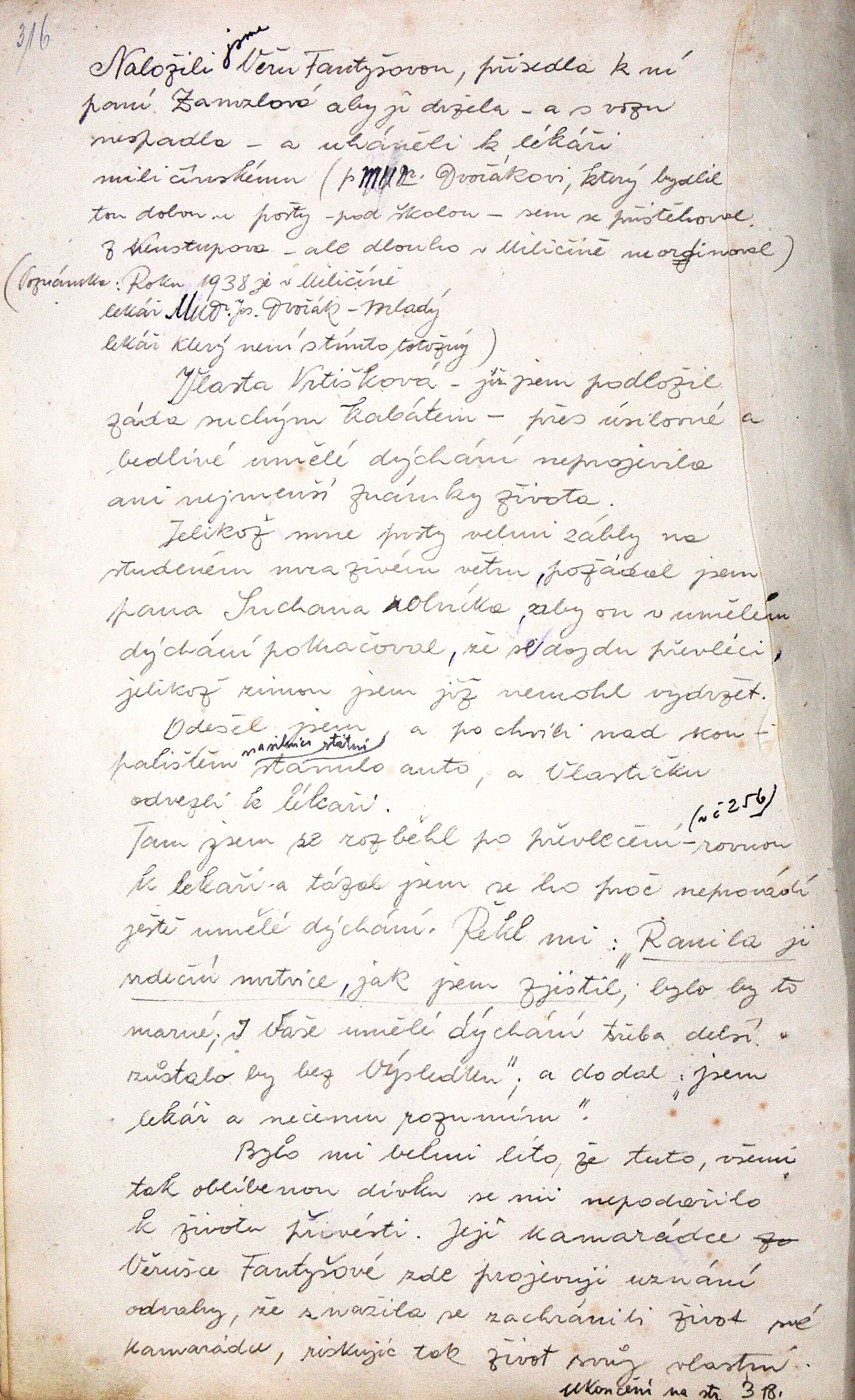 316
Naložili jsme Věru Fantyšovou, přisedla k ní
paní Zamzlová aby ji držela - a s vozu
nespadla - a uháněli k lékaři
miličínskému (p MUDr. Dvořákovi, který bydlil
tou dobou u pošty - pod školou - sem se přistěhoval
z Neustupova - ale dlouho v Miličíně neordinoval)
(Poznámka: Roku 1938 je v Miličíně
lékář MUDr. Jos. Dvořák - mladý
lékař který není s tímto totožný)
Vlasta Vrtišková - jíž jsem podložil
záda suchým kabátem - přes úsilovné a
bedlivé umělé dýchání neprojevila
ani nejmenší známky života.
Jelikož mne prsty velmi zábly na
studeném mrazivém větru, požádal jsem
pana Suchana rolníka, aby on v umělém
dýchání pokračoval, že se dojdu převléci,
jelikož zimou jsem již nemohl vydržet.
Odešel jsem, a po chvíli nad kou-
palištěm na silnici státní stanulo auto, a Vlastičku
odvezli k lékaři.
Tam jsem se rozběhl po převlečení - rovnou (v č 256)
k lékaři a tázal jsem se ho proč neprovádí
ještě umělé dýchání. Řekl mi: „Ranila ji
srdeční mrtvice, jak jsem zjistil, bylo by to
marné; I Vaše umělé dýchání třeba delší
zůstalo by bez výsledku"; a dodal: „jsem
lékář a něčemu rozumím".
Bylo mi velmi líto, že tuto, všemi
tak oblíbenou dívku se mi nepodařilo
k životu přivésti. Její kamarádce za
Věrušce Fantyšové zde projevuji uznání
odvahy, že snažila se zachrániti život své
kamarádce, riskujíc tak život svůj vlastní.
Ukončení na str 318.